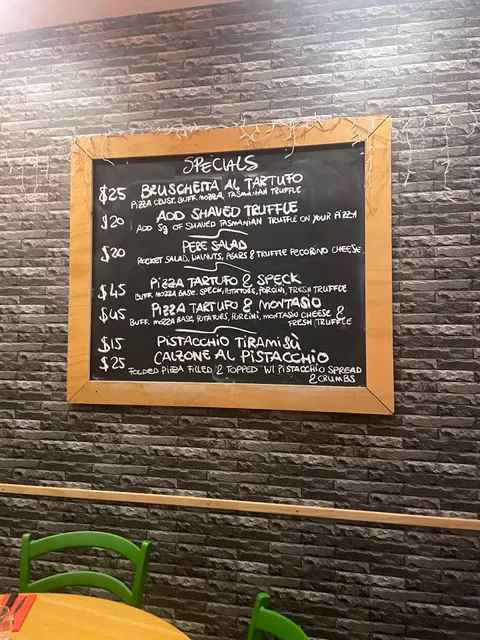 SPECIALS
$25 BRUSCHETTA AL TARTUFO
PIZZA CRUST, BUFF. MOZZA, TASMANIAN TRUFFLE
$20 ADD SHAVED TRUFFLE
ADD 5g OF SHAVED TASMANIAN TRUFFLE ON YOUR PIZZA
$20 PERE SALAD
ROCKET SALAD, WALNUTS, PEARS & TRUFFLE PECORINO CHEESE
$45 PIZZA TARTUFO & SPECK
BUFF. MOZZA BASE, SPECK, POTATOES, PORCINI, FRESH TRUFFLE
$45 PIZZA TARTUFO & MONTASIO
BUFF. MOZZA BASE, POTATOES, PORCINI, MONTASIO CHEESE &
FRESH TRUFFLE
$15 PISTACCHIO TIRAMISÙ
$25 CALZONE AL PISTACCHIO
FOLDED PIZZA FILLED & TOPPED W/ PISTACCHIO SPREAD
& CRUMBS